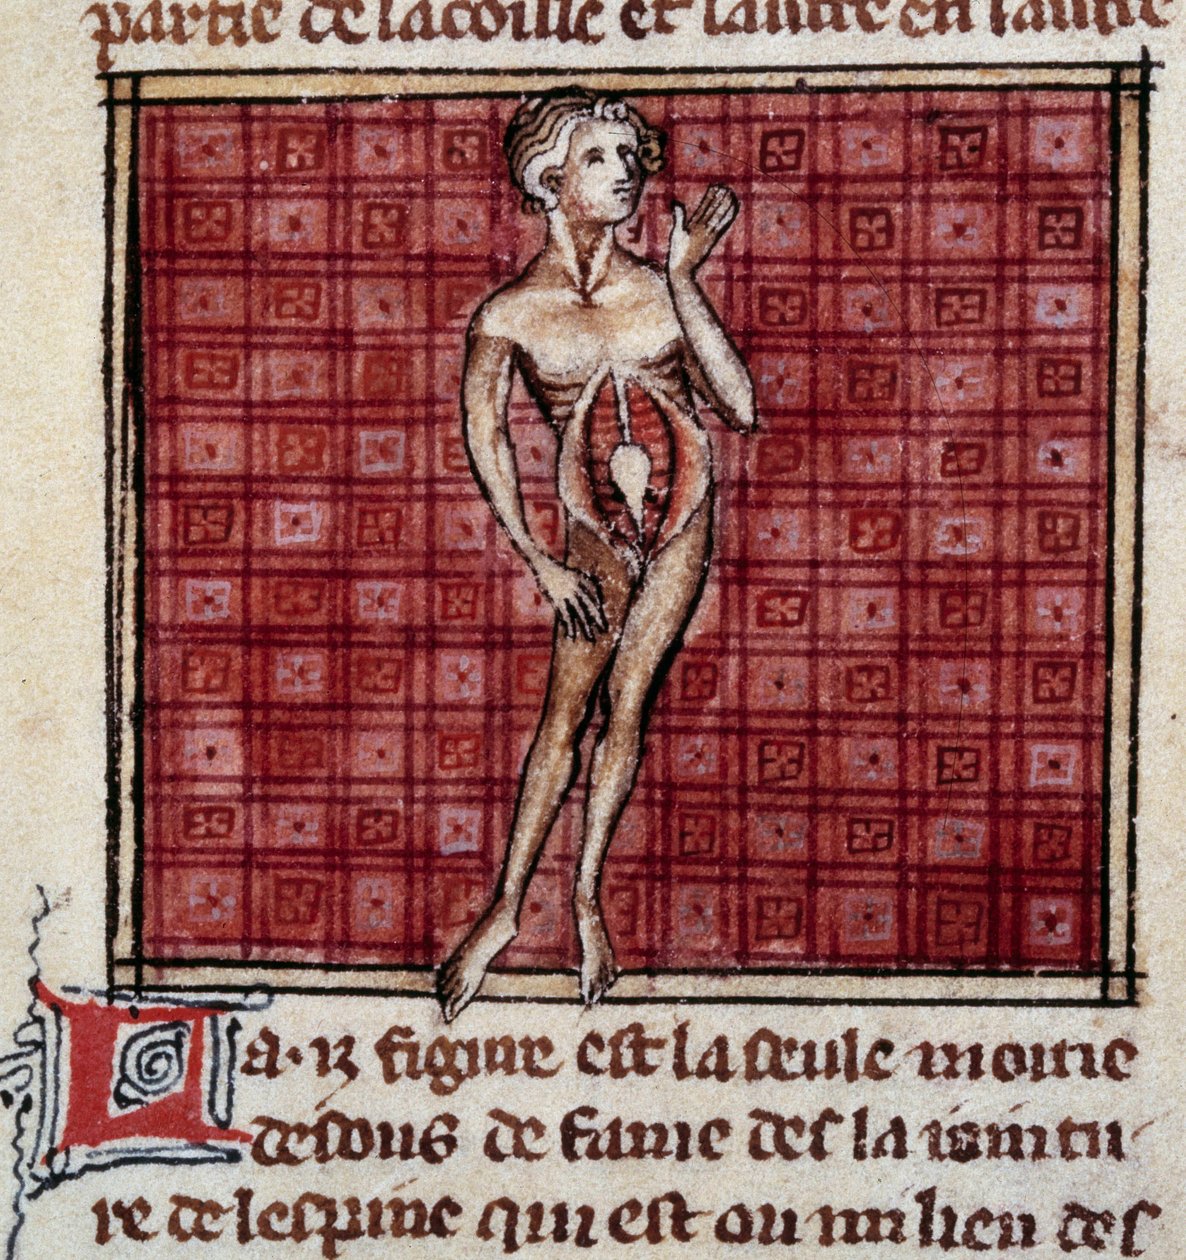 partie de lacoille et lautre en lautre
La .ix figure est la seule moitie
desous de fame des la iointu
re de lespine qui est ou milieu des